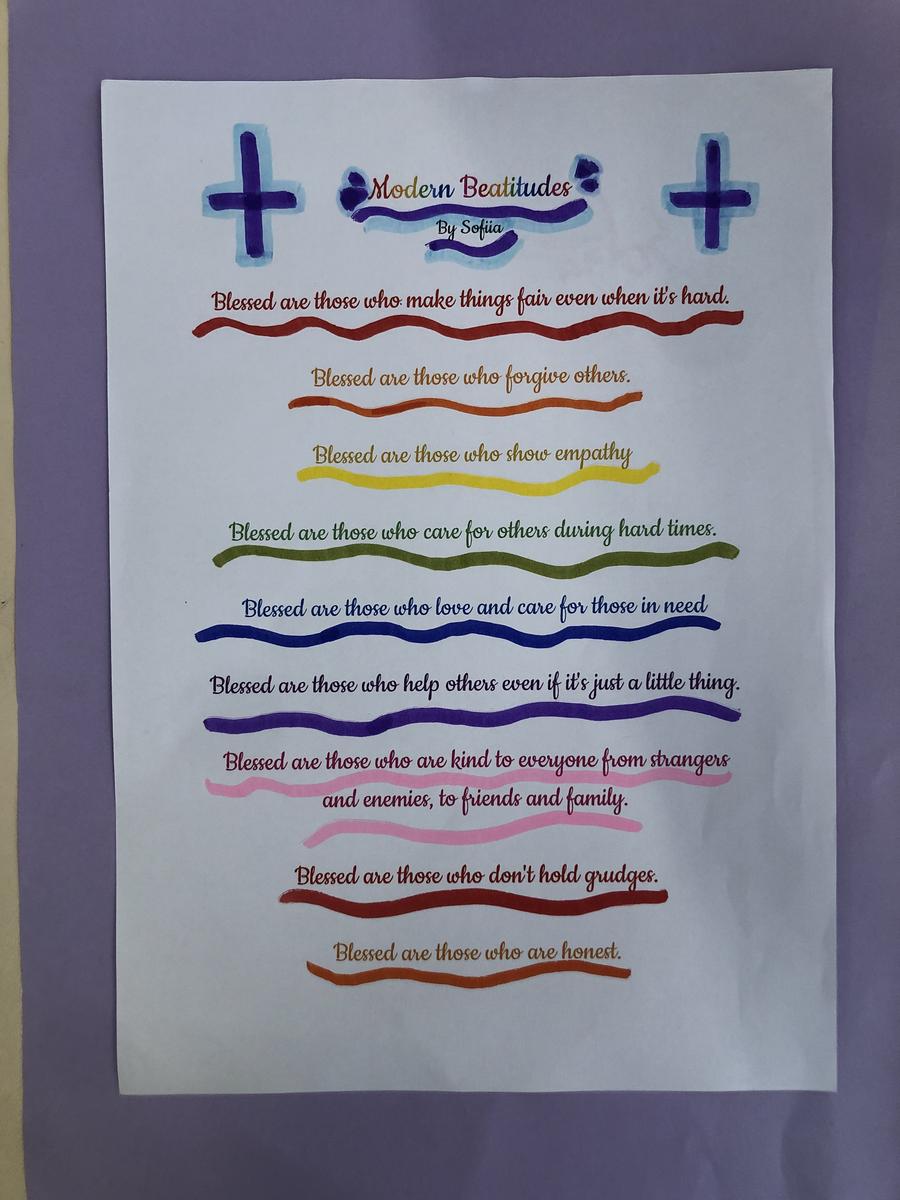 Modern Beatitudes
By Sofiia
Blessed are those who make things fair even when it's hard.
Blessed are those who forgive others.
Blessed are those who show empathy
Blessed are those who care for others during hard times.
Blessed are those who love and care for those in need
Blessed are those who help others even if it's just a little thing.
Blessed are those who are kind to everyone from strangers
and enemies, to friends and family.
Blessed are those who don't hold grudges.
Blessed are those who are honest.